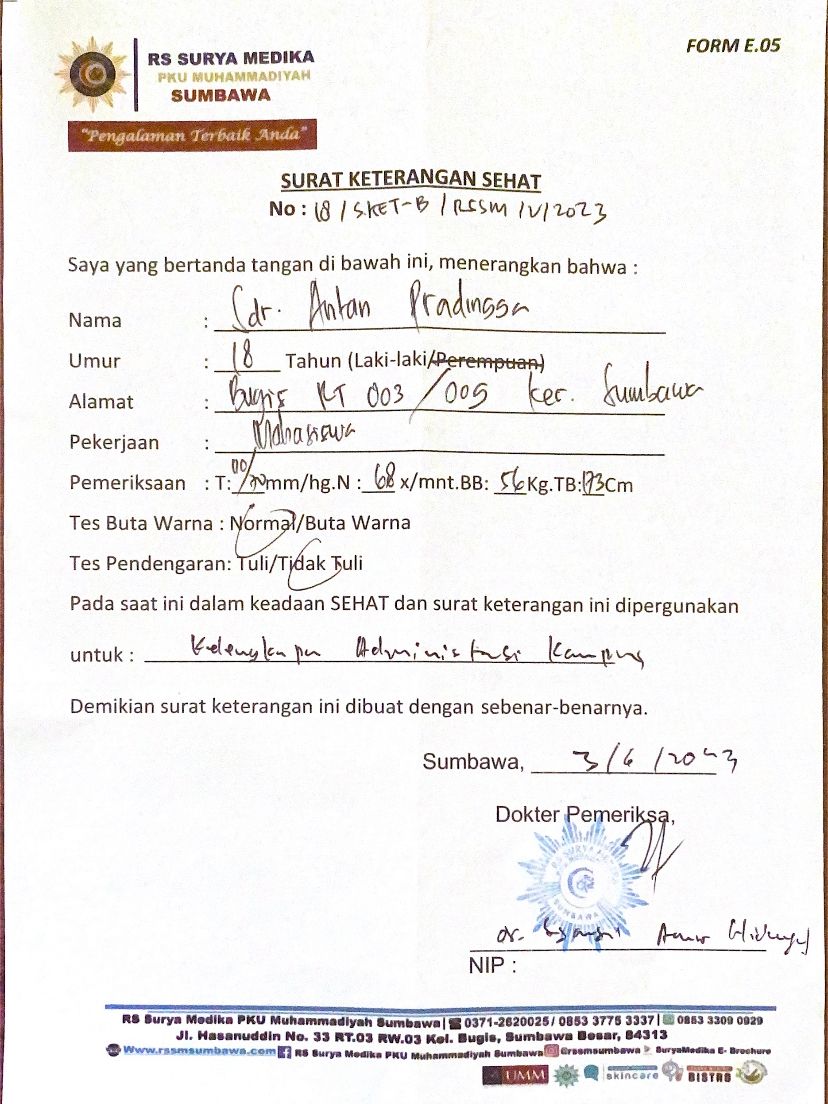 FORM E.05
RS SURYA MEDIKA
PKU MUHAMMADIYAH
SUMBAWA
"Pengalaman Terbaik Anda"
SURAT KETERANGAN SEHAT
No : 18 / S.KET-B / RSSM / V / 2023
Saya yang bertanda tangan di bawah ini, menerangkan bahwa :
Nama : Sdr. Antan Pradingga
Umur : 18 Tahun (Laki-laki/Perempuan)
Alamat : Bugis RT 003 / 005 Kec. Sumbawa
Pekerjaan : Mahasiswa
Pemeriksaan : T: /70mm/hg.N : 68 x/mnt.BB: 56 Kg.TB:173Cm
Tes Buta Warna : Normal/Buta Warna
Tes Pendengaran: Tuli/Tidak Tuli
Pada saat ini dalam keadaan SEHAT dan surat keterangan ini dipergunakan
untuk : Kelengkapan Administrasi Kampus
Demikian surat keterangan ini dibuat dengan sebenar-benarnya.
Sumbawa, 3/6/2023
Dokter Pemeriksa,
RS SURYA MEDIKA
SUMBAWA
dr.
NIP :
RS Surya Medika PKU Muhammadiyah Sumbawa| 0371-2620025/ 0853 3775 3337| 0853 3309 0929
Jl. Hasanuddin No. 33 RT.03 RW.03 Kel. Bugis, Sumbawa Besar, 84313
Www.rssmsumbawa.com RS Surya Medika PKU Muhammadiyah Sumbawa @rssmsumbawa SuryaMedika E- Brochure
UMM skincare BISTRO